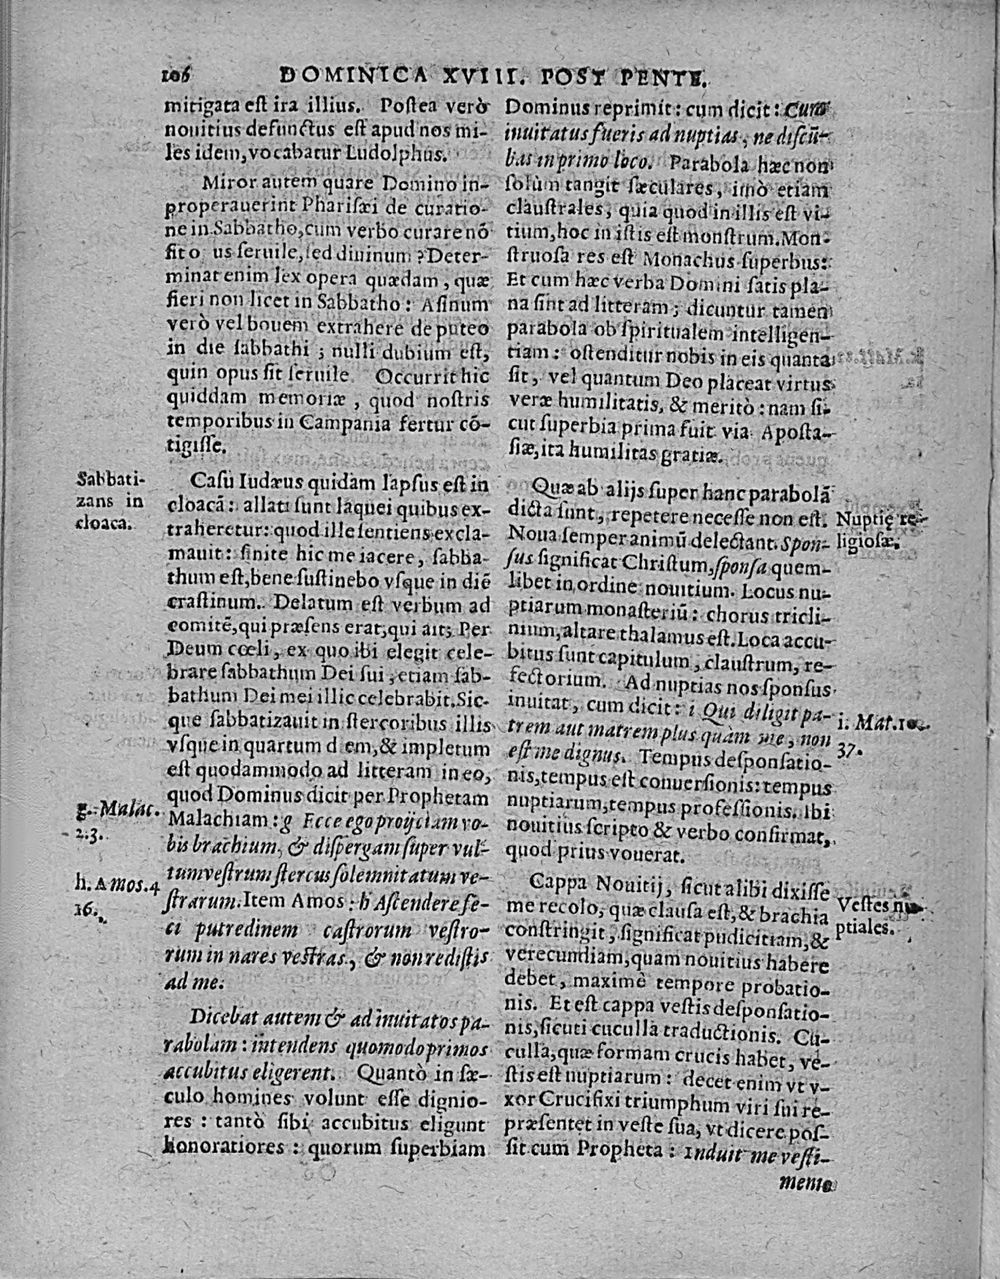 106 DOMINICA XVIII. POST PENTE.
mitigata est ira illius. Postea verò
nouitius defunctus est apud nos mi-
les idem, vocabatur Ludolphus.
Miror autem quare Domino in-
properauerint Pharisæi de curatio-
ne in Sabbatho, cum verbo curare nõ
sit o us seruile, sed diuinum? Deter-
minat enim lex opera quædam, quæ
fieri non licet in Sabbatho: Asinum
verò vel bouem extrahere de puteo
in die sabbathi; nulli dubium est,
quin opus sit seruile. Occurrit hic
quiddam memoriæ, quod nostris
temporibus in Campania fertur cõ-
tigisse.
Sabbati-
zans in
cloaca.
Casu Iudæus quidam lapsus est in
cloacã: allati sunt laquei quibus ex-
traheretur: quod ille sentiens excla-
mauit: sinite hic me iacere, sabba-
thum est, bene sustinebo vsque in diẽ
crastinum. Delatum est verbum ad
comitẽ, qui præsens erat; qui ait; Per
Deum cœli, ex quo ibi elegit cele-
brare sabbathum Dei sui, etiam sab-
bathum Dei mei illic celebrabit. Sic-
que sabbatizauit in stercoribus illis
vsque in quartum d em, & impletum
est quodammodo ad litteram in eo,
quod Dominus dicit per Prophetam
Malachiam: g Ecce ego proijciam vo-
bis brachium, & dispergam super vul-
tum vestrum stercus solemnitatum ve-
strarum. Item Amos: h Ascendere fe-
ci putredinem castrorum vestro-
rum in nares vestras, & non redistis
ad me.
g. Malac.
2.3.
h. Amos. 4
16.
Dicebat autem & ad inuitatos pa-
rabolam: intendens quomodo primos
accubitus eligerent. Quantò in sæ-
culo homines volunt esse dignio-
res: tantò sibi accubitus eligunt
honoratiores: quorum superbiam
Dominus reprimit: cum dicit: Cum
inuitatus fueris ad nuptias, ne discũ-
bas in primo loco. Parabola hæc non
solùm tangit sæculares, imò etiam
claustrales, quia quod in illis est vi-
tium, hoc in istis est monstrum. Mon-
struosa res est Monachus superbus:
Et cum hæc verba Domini satis pla-
na sint ad litteram; dicuntur tamen
parabola ob spiritualem intelligen-
tiam: ostenditur nobis in eis quanta
sit, vel quantum Deo placeat virtus
veræ humilitatis, & meritò: nam si-
cut superbia prima fuit via Aposta-
siæ, ita humilitas gratiæ.
Quæ ab alijs super hanc parabolã
dicta sunt, repetere necesse non est.
Noua semper animũ delectant. Spon-
sus significat Christum, sponsa quem-
libet in ordine nouitium. Locus nu-
ptiarum monasteriũ: chorus tricli-
nium, altare thalamus est. Loca accu-
bitus sunt capitulum, claustrum, re-
fectorium. Ad nuptias nos sponsus
inuitat, cum dicit: i Qui diligit pa-
trem aut matrem plus quàm me, non
est me dignus. Tempus desponsatio-
nis, tempus est conuersionis: tempus
nuptiarum, tempus professionis. ibi
nouitius scripto & verbo confirmat,
quod prius vouerat.
Nuptię re-
ligiosæ.
i. Mat. 10.
37.
Cappa Nouitij, sicut alibi dixisse
me recolo, quæ clausa est, & brachia
constringit, significat pudicitiam, &
verecundiam, quam nouitius habere
debet, maximè tempore probatio-
nis. Et est cappa vestis desponsatio-
nis, sicuti cuculla traductionis. Cu-
culla, quæ formam crucis habet, ve-
stis est nuptiarum: decet enim vt v-
xor Crucifixi triumphum viri sui re-
præsentet in veste sua, vt dicere pos-
sit cum Propheta: Induit me vesti-
mento
Vestes nu-
ptiales.